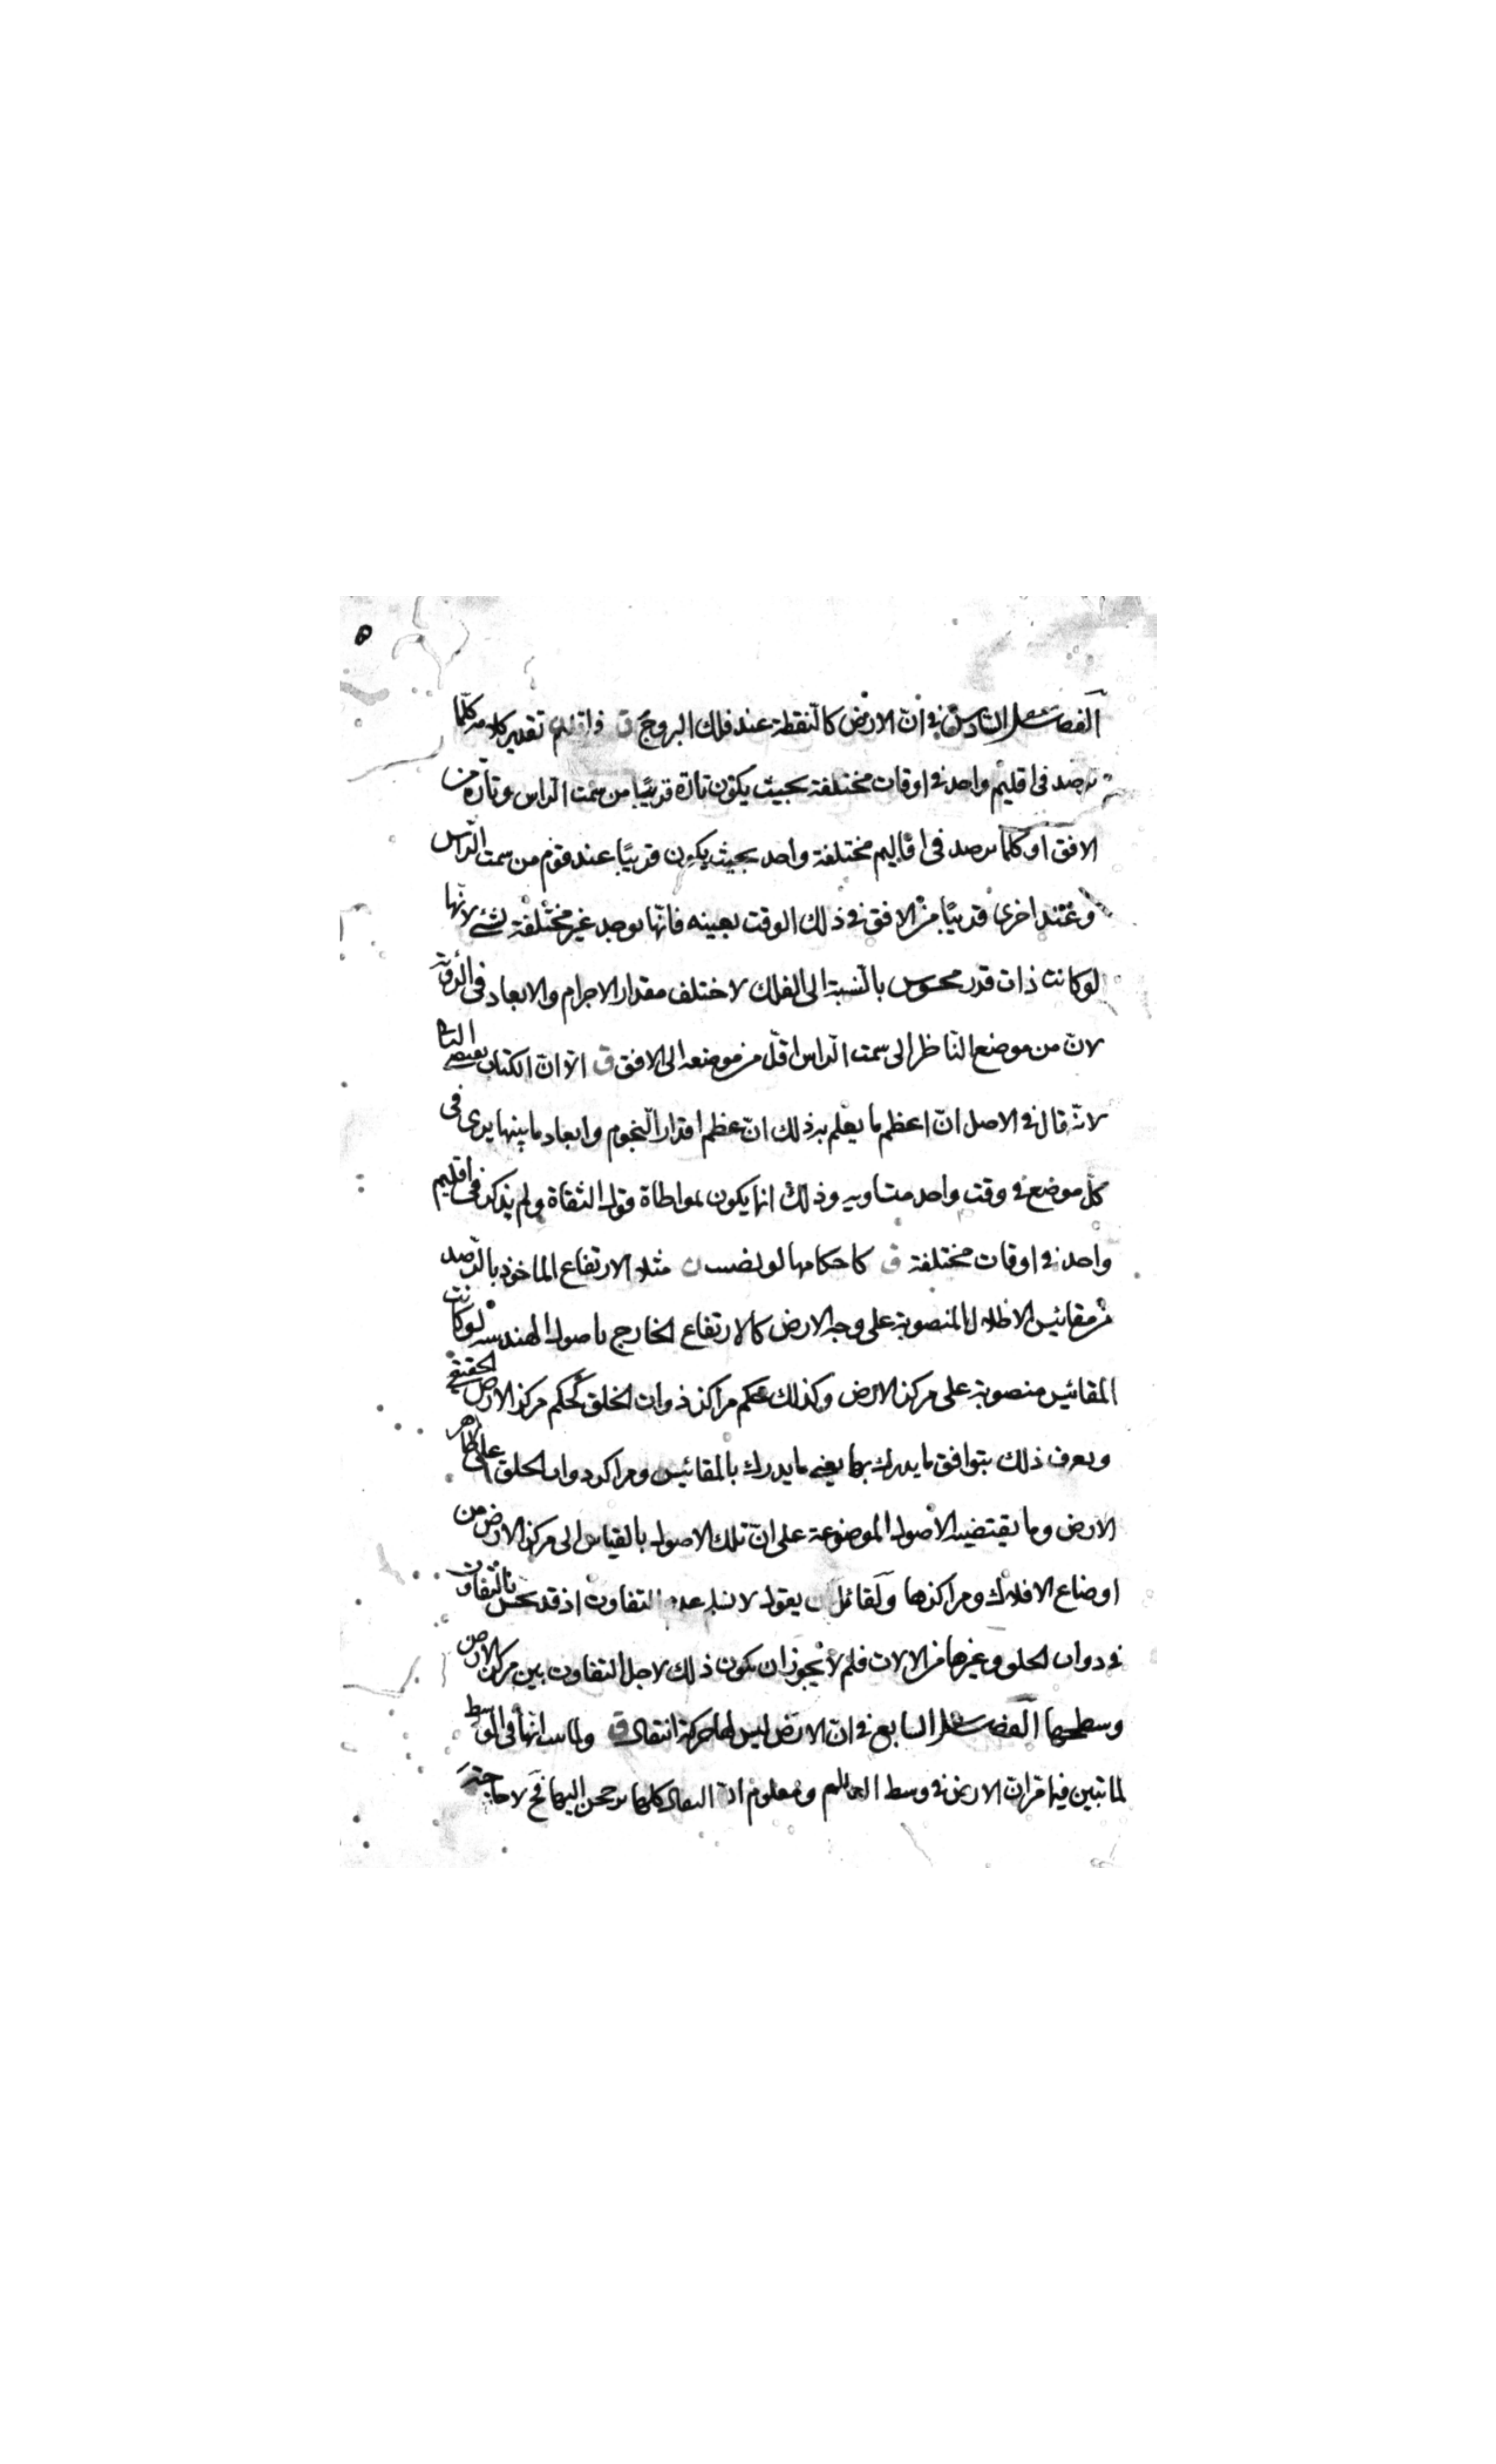 ٥
الفصل السادس في ان الارض كالنقطة عند فلك البروج ق تقدير كلامه كلما
يرصد في اقليم واحد في اوقات مختلفة بحيث يكون تارة قريبًا من سمت الرأس وتارة من
الافق او كلما يرصد في اقاليم مختلفة واحد بحيث يكون قريبًا عند قوم من سمت الرأس
وعند اخرى قريبًا من الافق في ذلك الوقت بعينه فانها يوجد غير مختلفة لشئ لانها
لو كانت ذات قدر محسوس بالنسبة الى الفلك لاختلف مقدار الاجرام والابعاد في الرؤية
لان من موضع الناظر الى سمت الرأس اقل من موضعه الى الافق ق الا ان الكتاب
لانه قال في الاصل ان اعظم ما يعلم به ذلك ان عظم اقدار النجوم وابعاد ما بينها يرى في
كل موضع في وقت واحد متساويه وذلك انما يكون لمواطاة قول الثقاة ولم يذكر في اقليم
واحد في اوقات مختلفة ق كاحكامها لو نصبت ن مثلا الارتفاع الماخوذ بالرصد
من مقائيس الاظلال المنصوبة على وجه الارض كالارتفاع الخارج باصول الهندسه لو كانت
المقائيس منصوبة على مركز الارض وكذلك حكم مراكز ذوات الحلق كحكم مركز الارض الحقيقي
ويعرف ذلك بتوافق ما يدرك بها يعني ما يدرك بالمقائيس ومراكز ذوات الحلق على ظاهر
الارض وما يقتضيه الاصول الموضوعة على ان تلك الاصول بالقياس الى مركز الارض من
اوضاع الافلاك ومراكزها ولقائل ان يقول لا نسلم عدم التفاوت اذ قد نحس بالتفاوت
في ذوات الحلق وغيرها من الالات فلم لا يجوز ان يكون ذلك لاجل التفاوت بين مركز الارض
وسطحها الفصل السابع في ان الارض ليس لها حركة انتقال ق ولما بين انها في الوسط
لما تبين فيما مر ان الارض في وسط العالم ومعلوم ان الثقال كلها يرجحن اليها فح لا حاجة